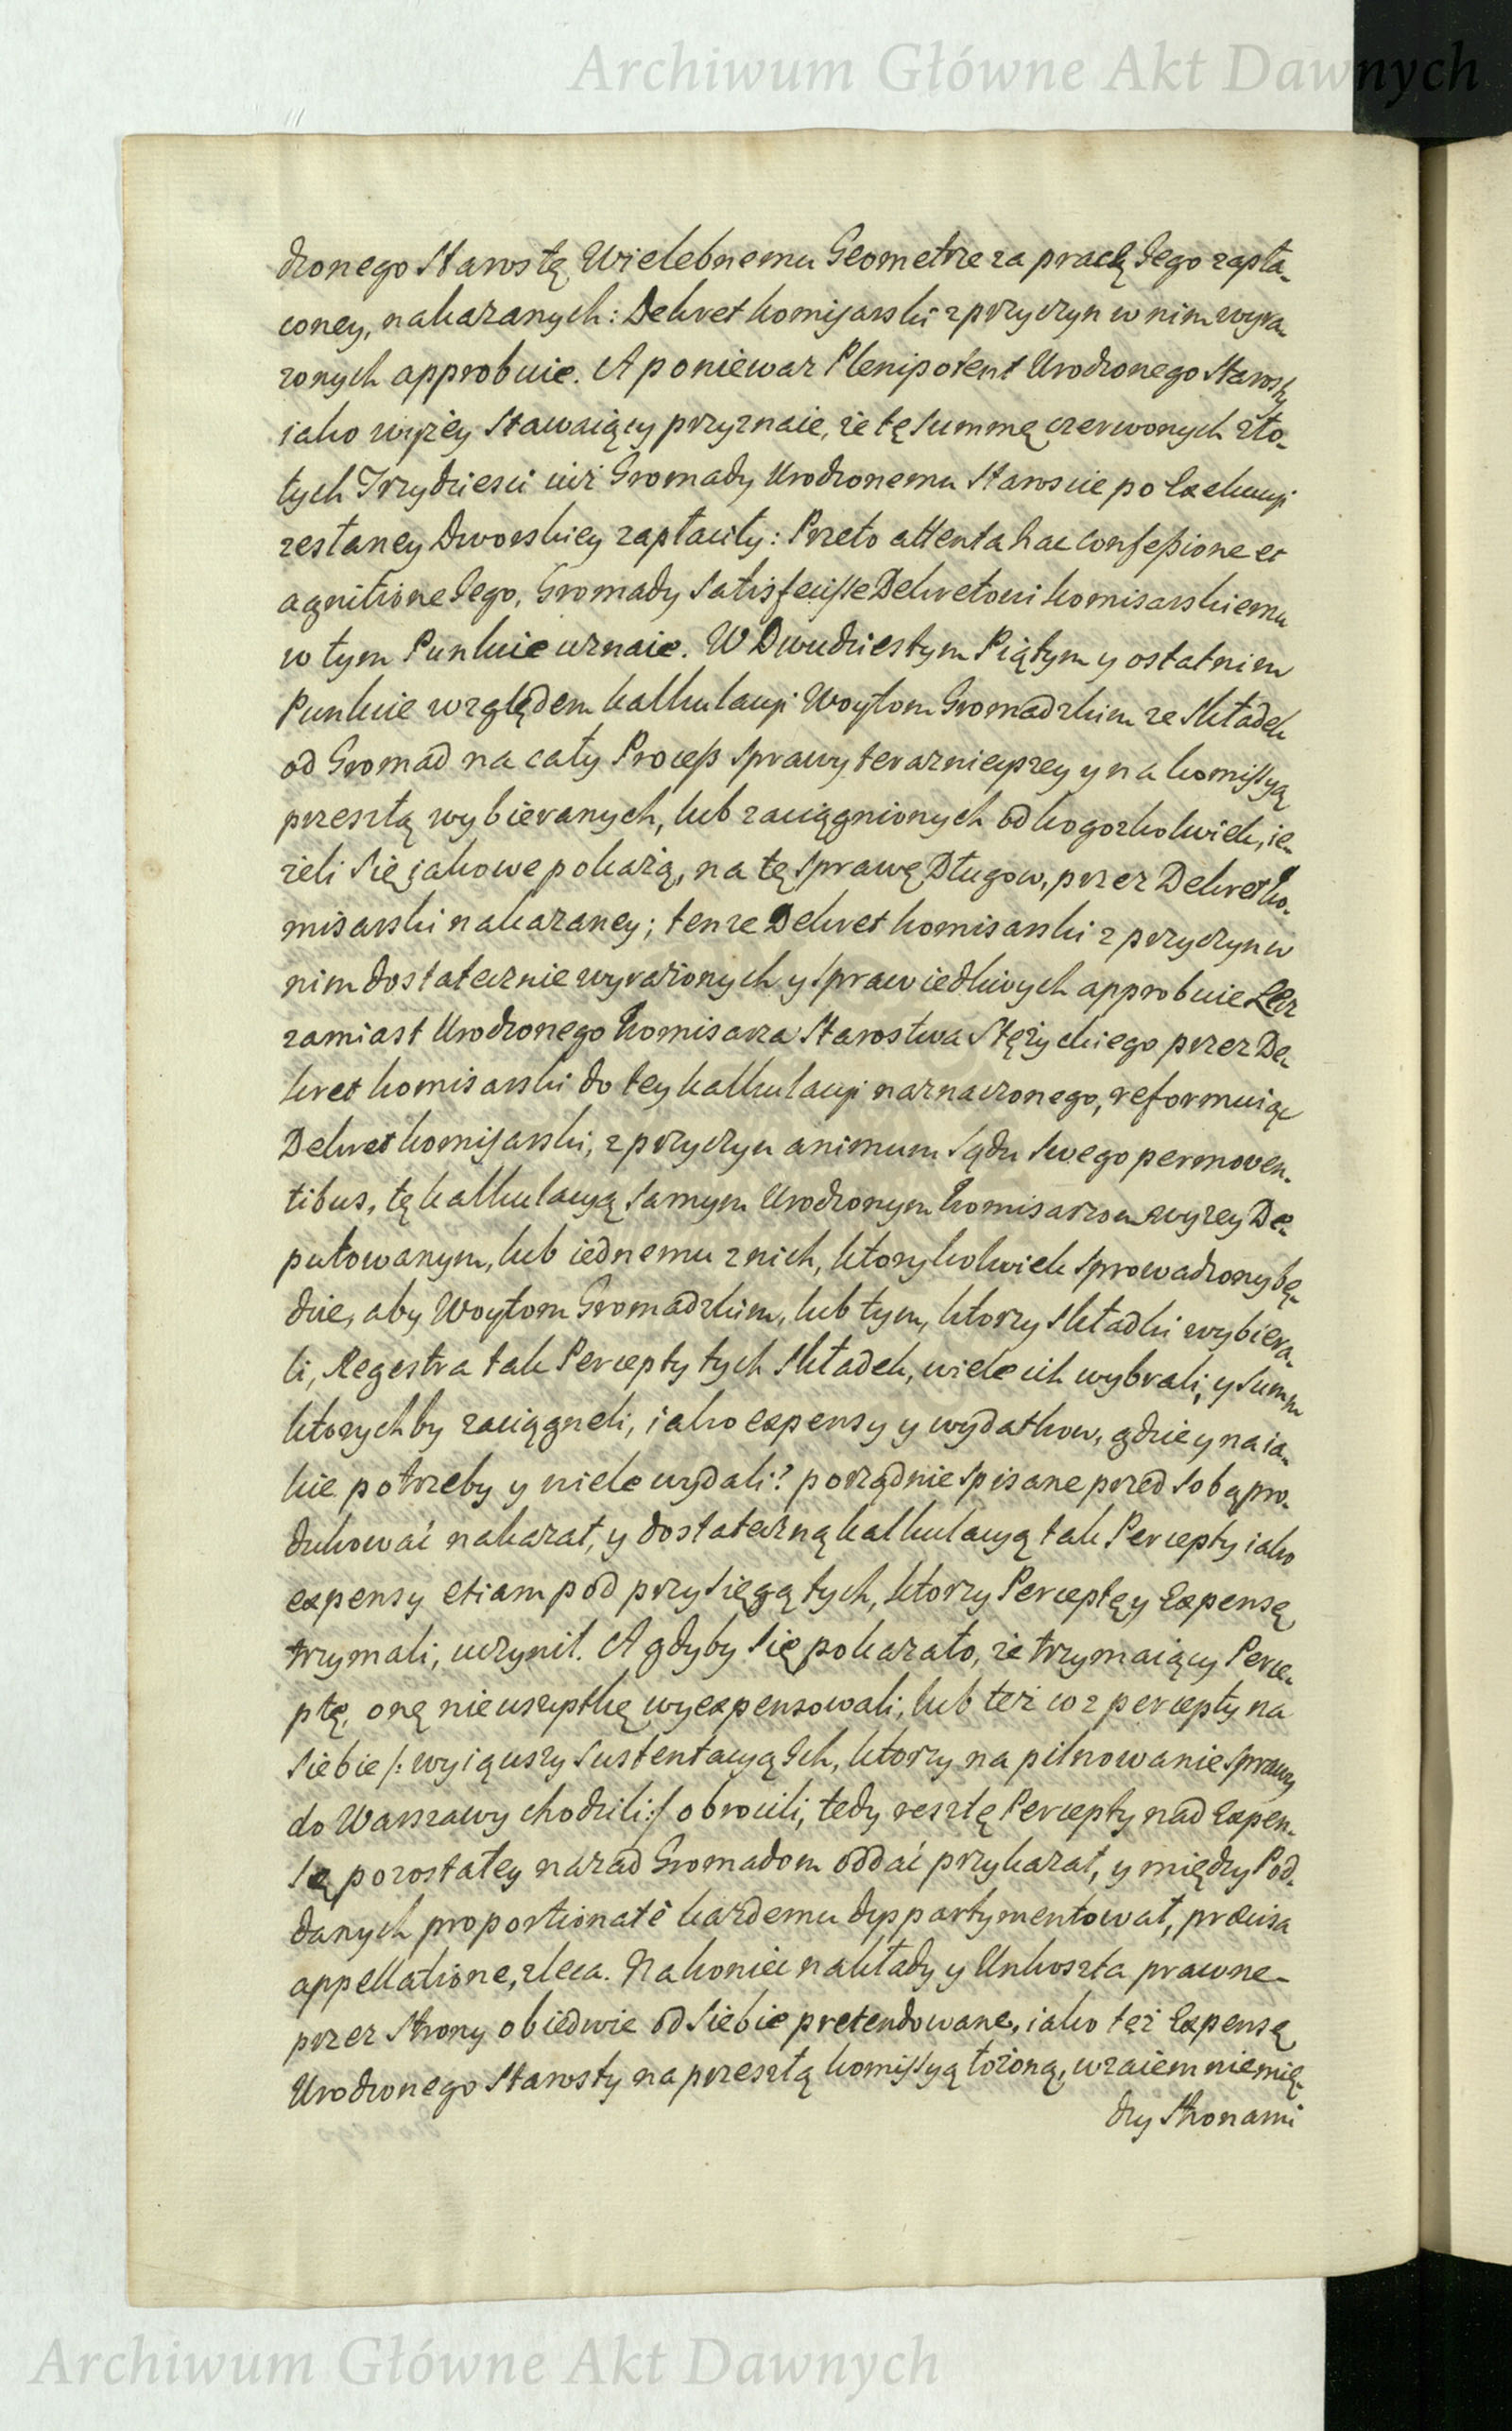 Archiwum Główne Akt Dawnych
dzonego Starostę Wielebnemu Geometrze za pracę Jego zapła-
coney, nakazanych: Dekret komisarski z przyczyn w nim wyra-
zonych approbuie. A poniewaz Plenipotent Urodzonego Starosty
iako wyżey stawaiący przyznaie, że tę summę czerwonych zło-
tych Trzydziesci iuż Gromady Urodzonemu Staroscie po Exekucyi
zesłaney Dworskiey zapłaciły: Przeto attenta hac confessione et
agnitione Jego, Gromady satisfecisse Dekretowi komisarskiemu
w tym Punkcie uznaie. W Dwudziestym Piątym y ostatnim
Punkcie względem kalkulacyi Woytom Gromadzkim ze Składek
od Gromad na cały Process sprawy terazniejszey y na kommissyą
przeszłą wybieranych, lub zaciągnionych od kogożkolwiek, ie-
żeli się jakowe pokażą, na tę sprawę Długow, przez Dekret ko-
misarski nakazaney; tenże Dekret komisarski z przyczyn w
nim dostatecznie wyrażonych y sprawiedliwych approbuie Lecz
zamiast Urodzonego Komisarza Starostwa Stężyckiego przez De-
kret komisarski do tey kalkulacyi naznaczonego, reformuiąc
Dekret komisarski, z przyczyn animum sądu swego permoven-
tibus, tę kalkulacyą samym Urodzonym Komisarzom wyzey De-
putowanym, lub iednemu z nich, ktorykolwiek sprowadzony bę-
dzie, aby Woytom Gromadzkim, lub tym, ktorzy składki wybiera-
li, Regestra tak Percepty tych Składek, wiele ich wybrali, y summ
ktorychby zaciągneli, iako expensy y wydatkow, gdzie y na ia-
kie potrzeby y wiele wydali? porządnie spisane przed sobą pro-
dukować nakazał, y dostateczną kalkulacyą tak Percepty iako
expensy etiam pod przysięgą tych, ktorzy Perceptę y Expensę
trzymali, uczynił. A gdyby się pokazało, że trzymaiący Perce-
ptę, onę nie wszystkę wyexpensowali, lub też co z percepty na
siebie /: wyiąwszy sustentacyą Ich, ktorzy na pilnowanie sprawy
do Warszawy chodzili :/ obrocili, tedy resztę Percepty nad Expen-
są pozostałey nazad Gromadom oddać przykazał, y między Pod-
danych proportionatè kazdemu dyppartymentował, præcisa
appellatione, zleca. Nakoniec nakłady y Unkoszta prawne
przez Strony obiedwie od siebie pretendowane, iako też Expensę
Urodzonego Starosty na przeszłą kommissyą łożoną, wzaiemnie mię-
dzy Stronami
Archiwum Główne Akt Dawnych